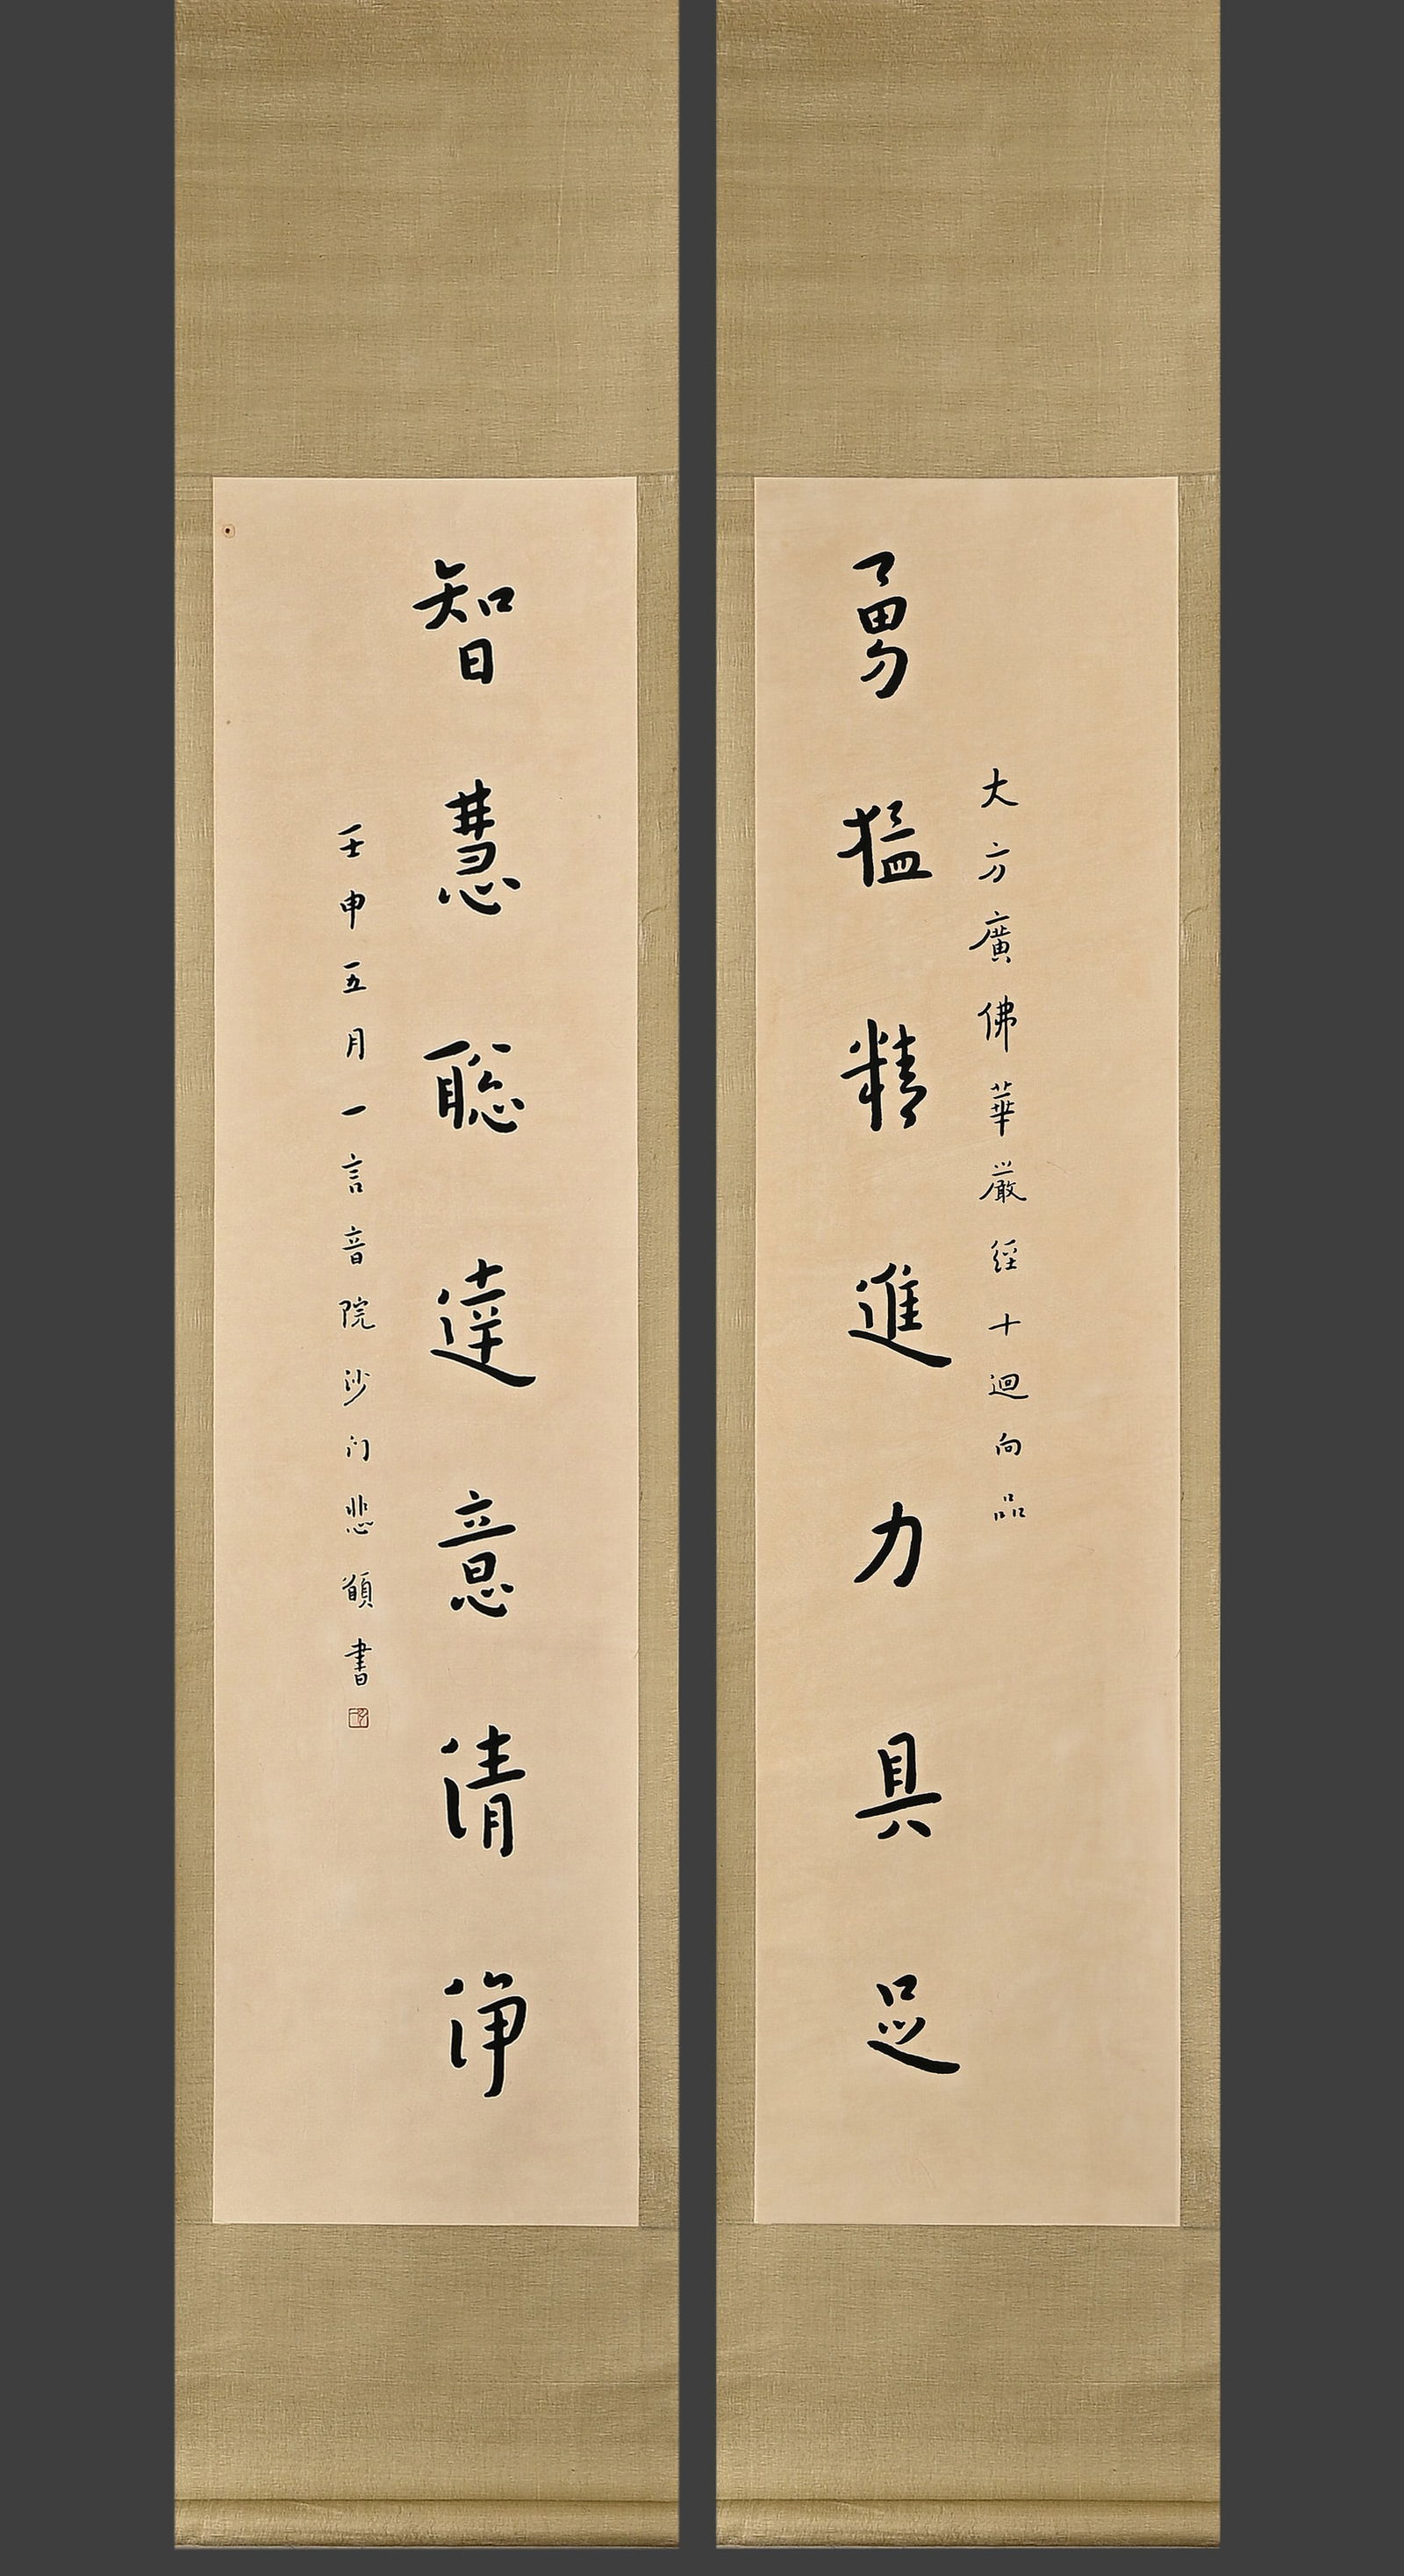 大方廣佛華嚴經十迴向品
勇猛精進力具足
智慧聡達意清淨
壬申五月一言音院沙门悲願書